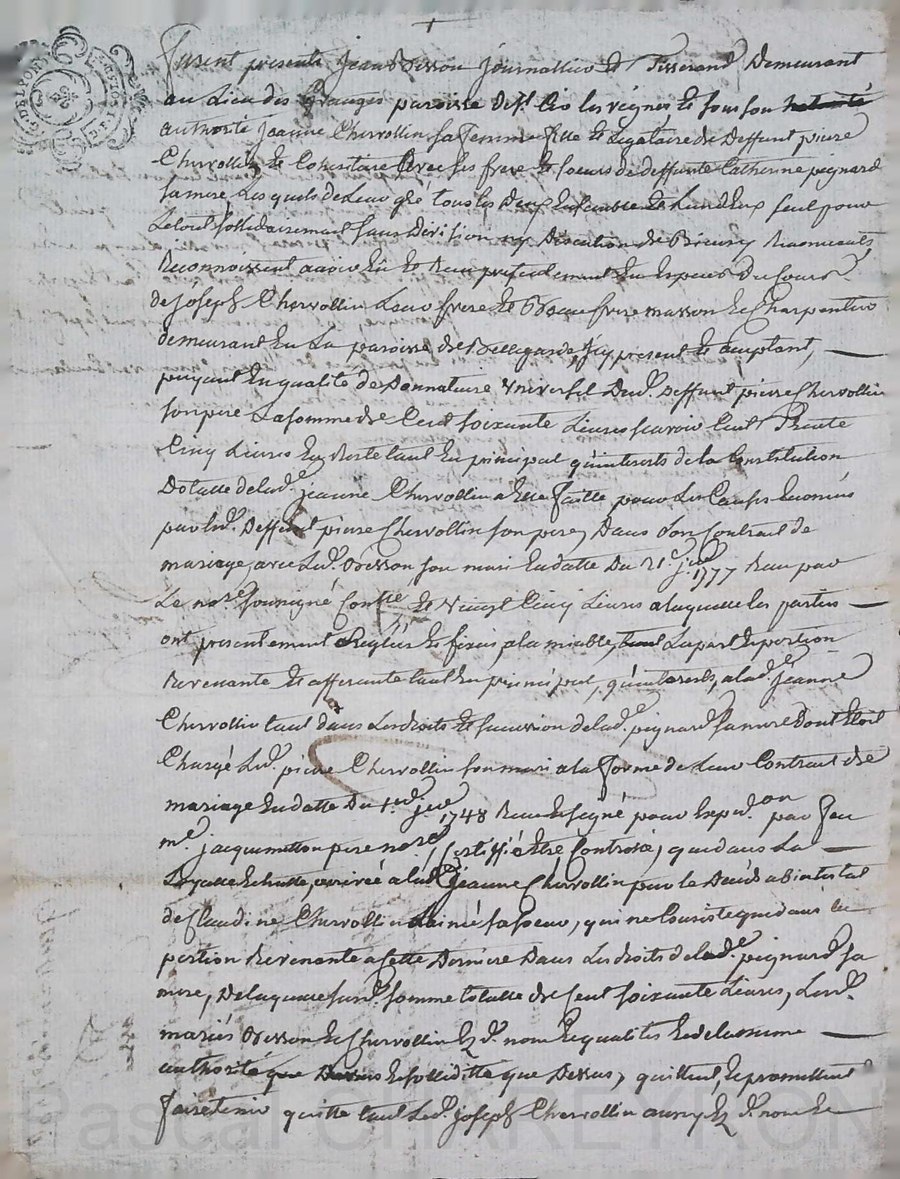 furent presents Jean Bisson Journallier et Tisserand Demeurant
au Lieu des Granges paroisse de St Cir les vignes et sous son
authorité Jeanne Chervollin sa femme fille et Legataire de Deffunt pierre
Chervollin et Coheritiere avec ses frere et soeurs de deffunte Catherine peignard
sa mere Lesquels de Leur gré tous les Deux Ensemble et Lun d'Eux seul pour
Le tout sollidairement sans Division ny Discution de Biens y Renonceants
Reconnoissent avoir Eu et Reçu presentement En Especes du Cours
de Joseph Chervollin Leur frere et Beau frere masson et Charpentier
demeurant En La paroisse de Bellegarde, Icy present et acceptant,
payant En qualité de Donnataire Universel Dud. Deffunt pierre Chervollin
son pere La somme de Cent soixante Livres scavoir Cent Trente
Cinq Livres En Reste tant En principal qu'interets de la Constitution
Dotalle de lad. jeanne Chervollin a Elle faitte pour Les Causes
par led. Deffunt pierre Chervollin son pere, Dans son Contrat de
mariage avec Led. Bisson son mari En datte Du 21e 1777 Reçu par
Le nore soussigné Contlé, Et Vingt Cinq Livres a laquelle les parties
ont presentement Reglées et fixées a la miable, La part Et portion
Revenante Et afferante tant En principal, qu'interets, a lad. jeanne
Chervollin tant dans Les droits Et succession de lad. peignard sa mere Dont Etoit
Chargé Led. pierre Chervollin son mari a la forme de Leur Contrat de
mariage En datte Du 1748 Reçu Et signé pour Expedon par feu
me. jacquemetton pere nore Certiffié Etre Controlé, que dans La
Echutte, arrivée a lad. jeanne Chervollin par le Deces abintestat
de Claudine Chervollin sa soeur, qui ne Consiste que dans la
portion Revenante a Cette Derniere Dans Les droits de lad. peignard sa
mere, De laquelle susd. somme totalle de Cent soixante Livres, Lesd.
mariés Bisson Et Chervollin Ez d. noms Et qualités Et de la meme
authorité Et sollidité que Dessus, quittent, Et promettent
faire tenir quitte tant Led. Joseph Chervollin aussy Ez d. nom Et
Pascal CHAREYRON